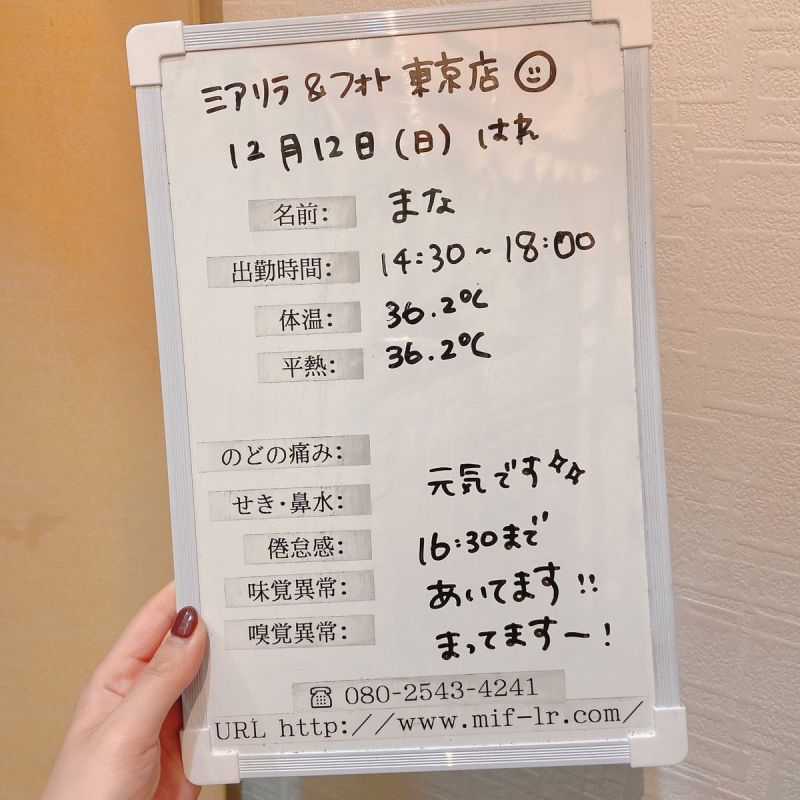 ミアリラ&フォト 東京店
12月12日(日) はれ
名前: まな
出勤時間: 14:30~18:00
体温: 36.2℃
平熱: 36.2℃
のどの痛み:
せき・鼻水: 元気です
倦怠感: 16:30まで
味覚異常: あいてます!!
嗅覚異常: まってますー!
☎ 080-2543-4241
URL http://www.mif-lr.com/